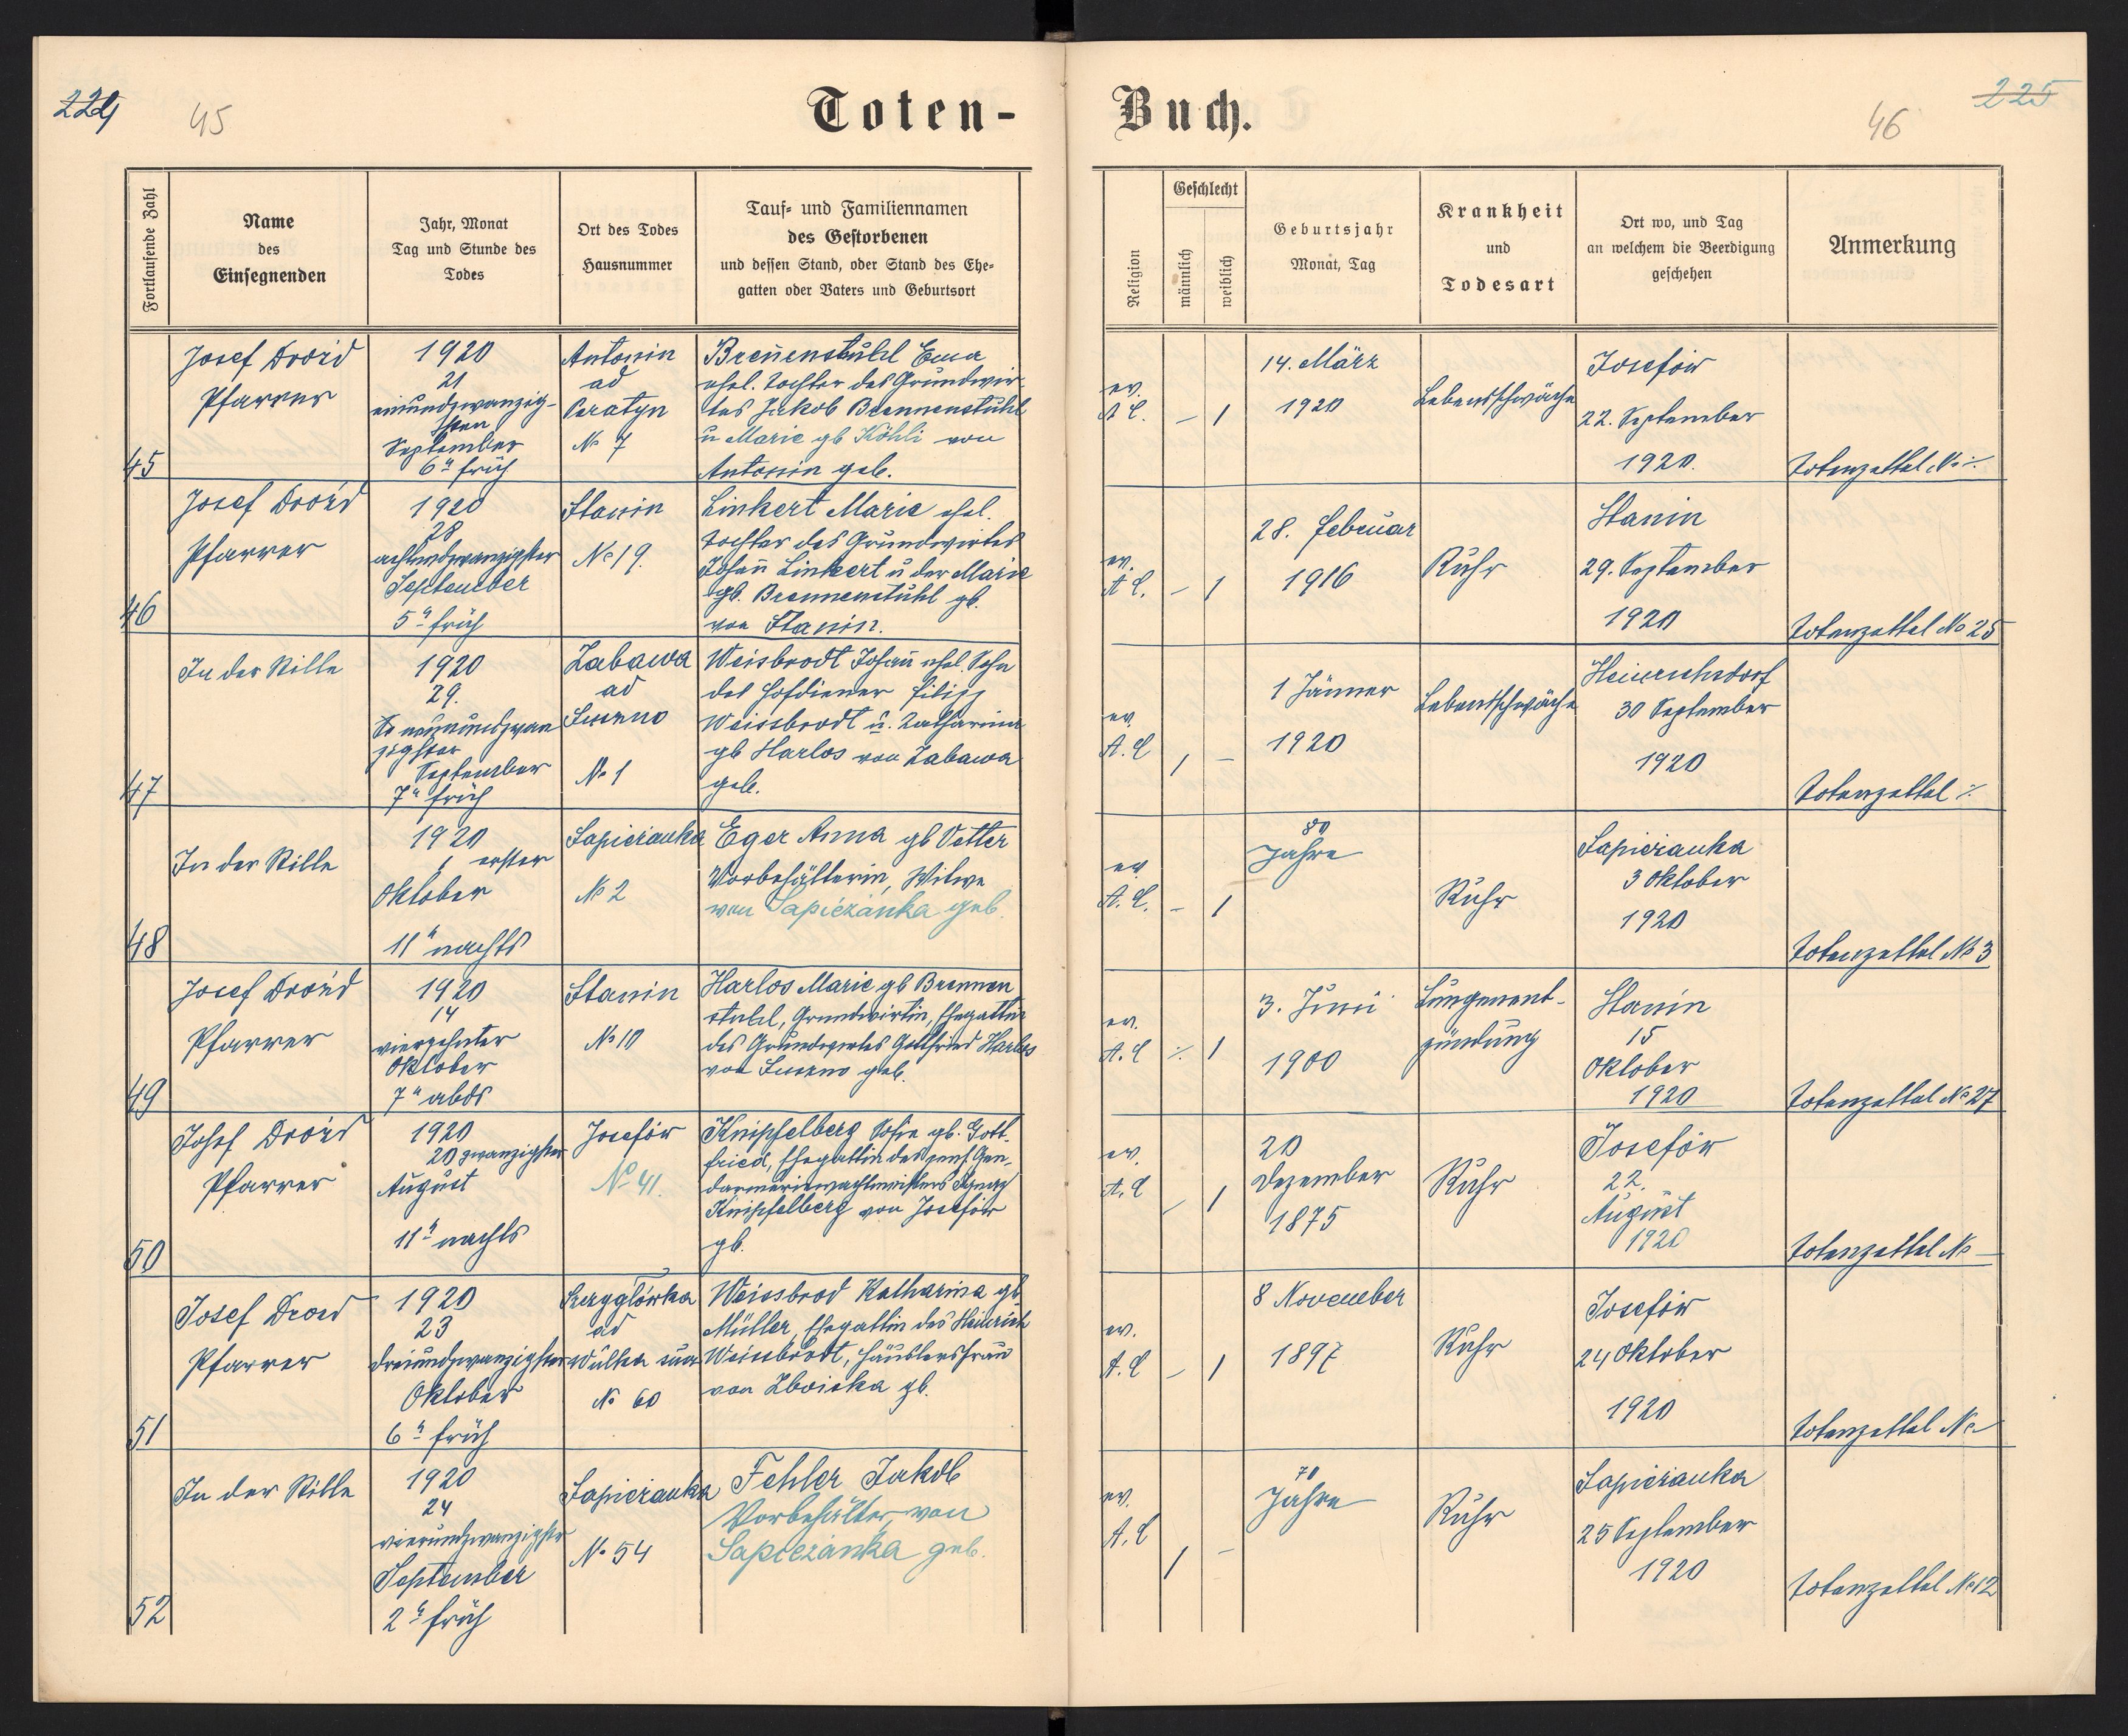 224
45
Toten-
Buch.
46
225
Fortlaufende Zahl
Name
des
Einsegnenden
Jahr, Monat
Tag und Stunde des
Todes
Ort des Todes
Hausnummer
Tauf- und Familiennamen
des Gestorbenen
und dessen Stand, oder Stand des Ehe-
gatten oder Vaters und Geburtsort
Religion
Geschlecht
männlich
weiblich
Geburtsjahr
Monat, Tag
Krankheit
und
Todesart
Ort wo, und Tag
an welchem die Beerdigung
geschehen
Anmerkung
45
Josef Drożd
Pfarrer
1920
21
einundzwanzig-
sten
September
6 h früh
Antonin
ad
Peratyn
No 7
Breñenstuhl Ema
ehel. Tochter des Grundwir-
tes Jakob Brennenstuhl
u Marie gb Köhli von
Antonin geb.
ev.
A C.
— 1
14. März
1920
Lebensschwäche
Josefów
22. September
1920.
Totenzettel No ·/.
46
Josef Drożd
Pfarrer
1920
28
achtundzwanzigster
September
5 h früh
Stanin
No 19.
Linkert Marie ehel.
Tochter des Grundwirtes
Johañ Linkert u der Marie
gb. Brennenstuhl gb.
von Stanin.
ev.
A C.
— 1
28. Februar
1916
Ruhr
Stanin
29. September
1920
Totenzettel No 25
47
In der Stille
1920
29.
neunundzwan
zigster
September
7 h früh
Zabawa
ad
No 1
Weisbrodt Johañ ehel. Sohn
des Hofdiener Filipp
Weissbrodt u. Katharina
gb Harlos von Zabawa
geb.
ev.
A. C
1 —
1 Jänner
1920
Lebensschwäche
Heinrichsdorf
30 September
1920
Totenzettel ·/.
48
In der Stille
1920
1 erster
Oktober
11 h nachts
Sapieżanka
No 2
Eger Anna gb Vetter
Vorbehälterin, Witwe
von Sapieżanka geb.
ev.
A. C.
— 1
80
Jahre
Ruhr
Sapieżanka
3 Oktober
1920
Totenzettel No 3
49
Josef Drożd
Pfarrer
1920
14
vierzehnter
Oktober
7 h abds
Stanin
No 10
Harlos Marie gb Brennen
stuhl, Grundwirtin, Ehegattin
des Grundwirtes Gottfried Harlos
von geb.
ev.
A. C
·/. 1
3. Juni
1900
Lungenent-
zündung
Stanin
15
Oktober
1920
Totenzettel No 27
50
Josef Drożd
Pfarrer
1920
20 zwanzigster
August
11 h nachts
Josefów
No 41.
Knipfelberg Sofie gb. Gott-
fried, Ehegattin des pens. Gen-
darmeriewachtmeisters Ignaz
Knipfelberg von Josefów
gb.
ev.
A. C
— 1
20
Dezember
1875
Ruhr
Josefów
22.
August
1920
Totenzettel No —
51
Josef Drozd
Pfarrer
1920
23
dreiundzwanzigster
Oktober
6 h früh
ad
No 60
Weissbrod Katharina gb
Müller, Ehegattin des Heinrich
Weissbrodt, Häuslersfrau
von Zboiska gb.
ev.
A. C
— 1
8 November
1897
Ruhr
Josefów
24 Oktober
1920
Totenzettel No —
52
In der Stille
1920
24
vierundzwanzigster
September
2 h früh
Sapieżanka
No 54
Fehler Jakob
Vorbehälter, von
Sapieżanka geb.
ev.
A. C
1 —
70
Jahre
Ruhr
Sapieżanka
25 September
1920
Totenzettel No 12